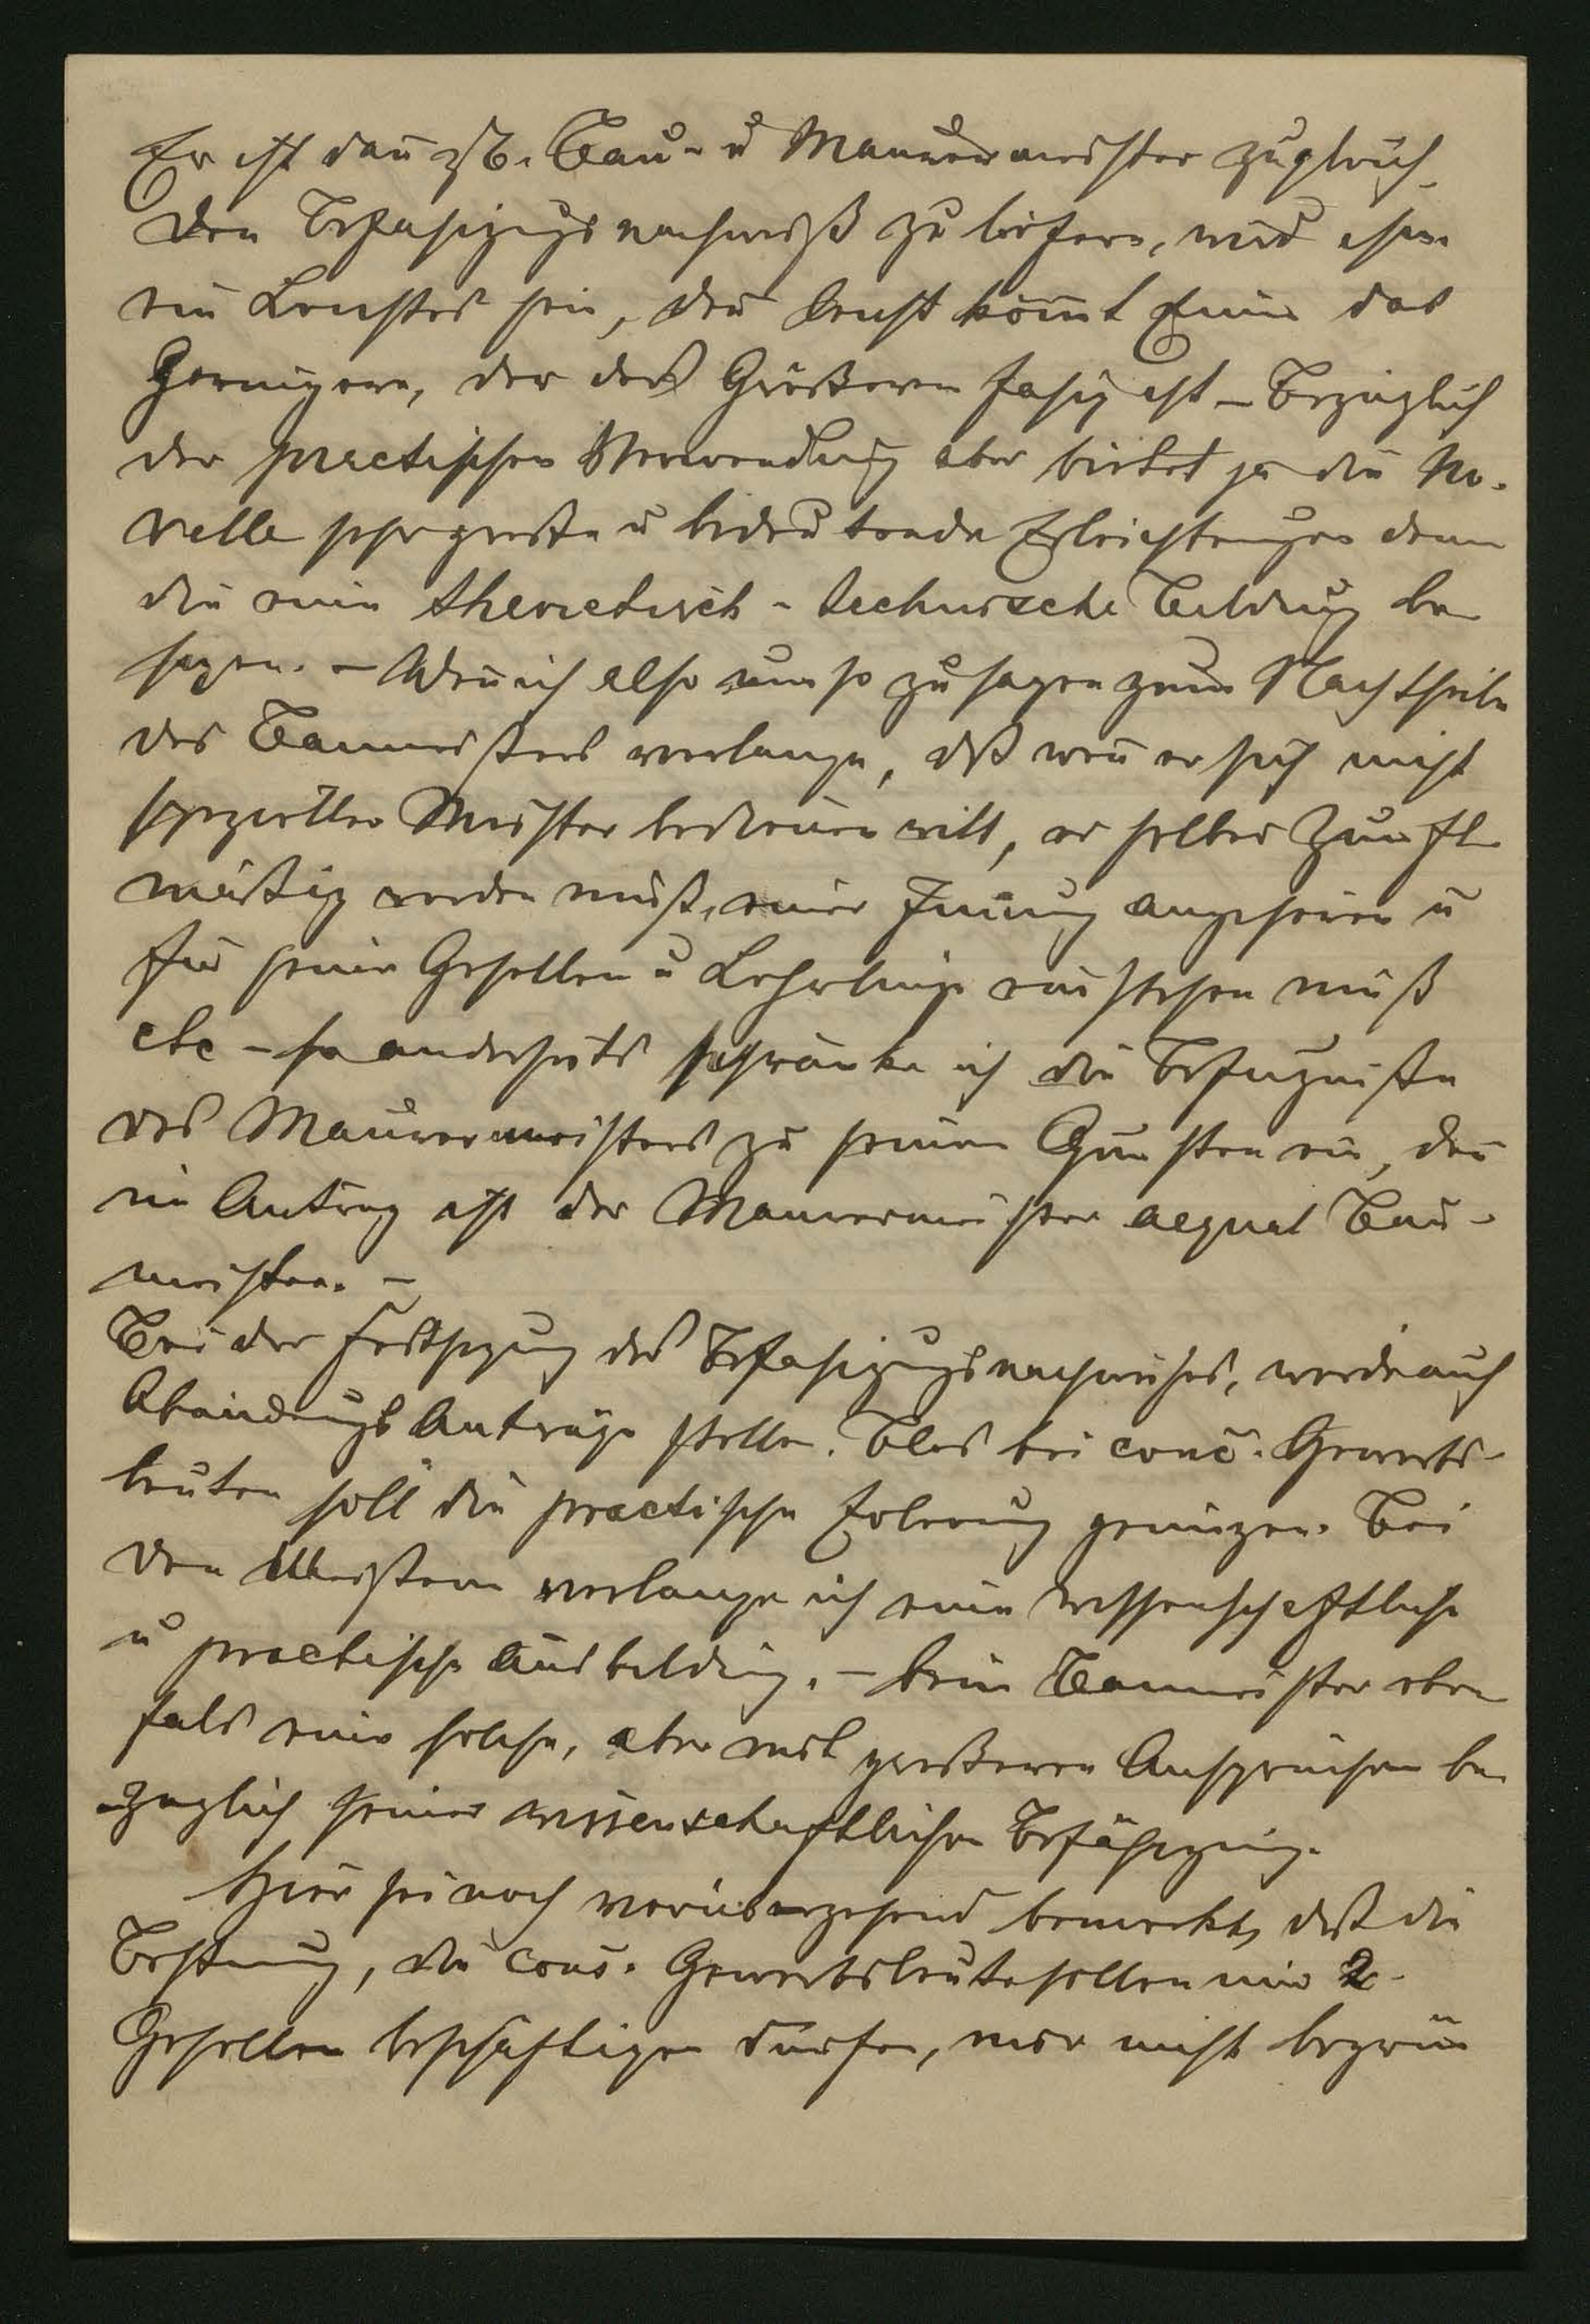 Er ist dañ zB. Bau- u Maurermeister zugleich.
Den Befähigungsnachweiß zu liefern, wird ihm
ein Leichtes sein, deñ sonst köm̃t Einer das
Geringere, der des Größeren fähig ist – Bezüglich
der practischen Verwendung aber bietet ja die No-
velle sehr große u bedeutende Erleichterungen denen
die eine theoretisch-technische Bildung be
sizen. – Weñ ich also nun so zu sagen zum Nachtheile
des Baumeisters verlange, dß weñ er sich nicht
spezieller Meister bedienen will, er selber Zunft
mäßig werden muß, einer Iñung angehören u
für seine Gesellen u Lehrlinge einstehen muß
etc – so anderseits schränke ich die Befugniße
des Maurermeisters zu seinen Gunsten ein, deñ
im Antrag ist der Maurermeister aequal Bau-
meister. –
Bei der Festsezung des Befähigungsnachweises, werde auch
Abänderungs Anträge stellen. Blos bei conc. Gewerbs-
leuten soll die practische Erlernung genügen. Bei
den Meistern verlange ich eine wissenschaftliche
u practische Ausbildung. – beim Baumeister eben
falls eine solche, aber mit größeren Ansprüchen be
züglich seiner wissenschaftlichen Befähigung.
Hier sei noch vorübergehend bemerkt, daß die
Bestimmung, die conc. Gewerbsleute sollen nur 2
Gesellen beschäftigen dürfen, mir nicht begrün